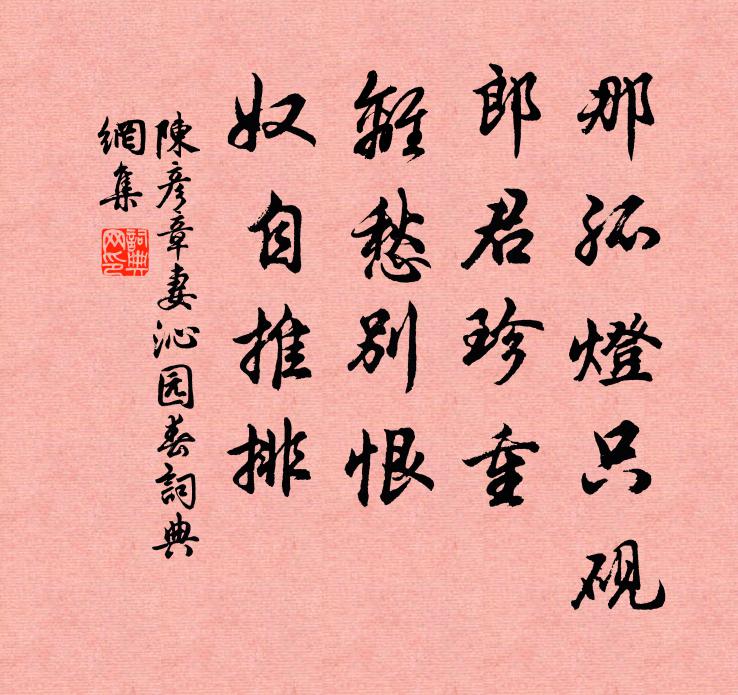 那孤燈只硯
郎君珍重
離愁別恨
奴自推排
陳彥章妻沁园春詞典
網集
詞典
网印